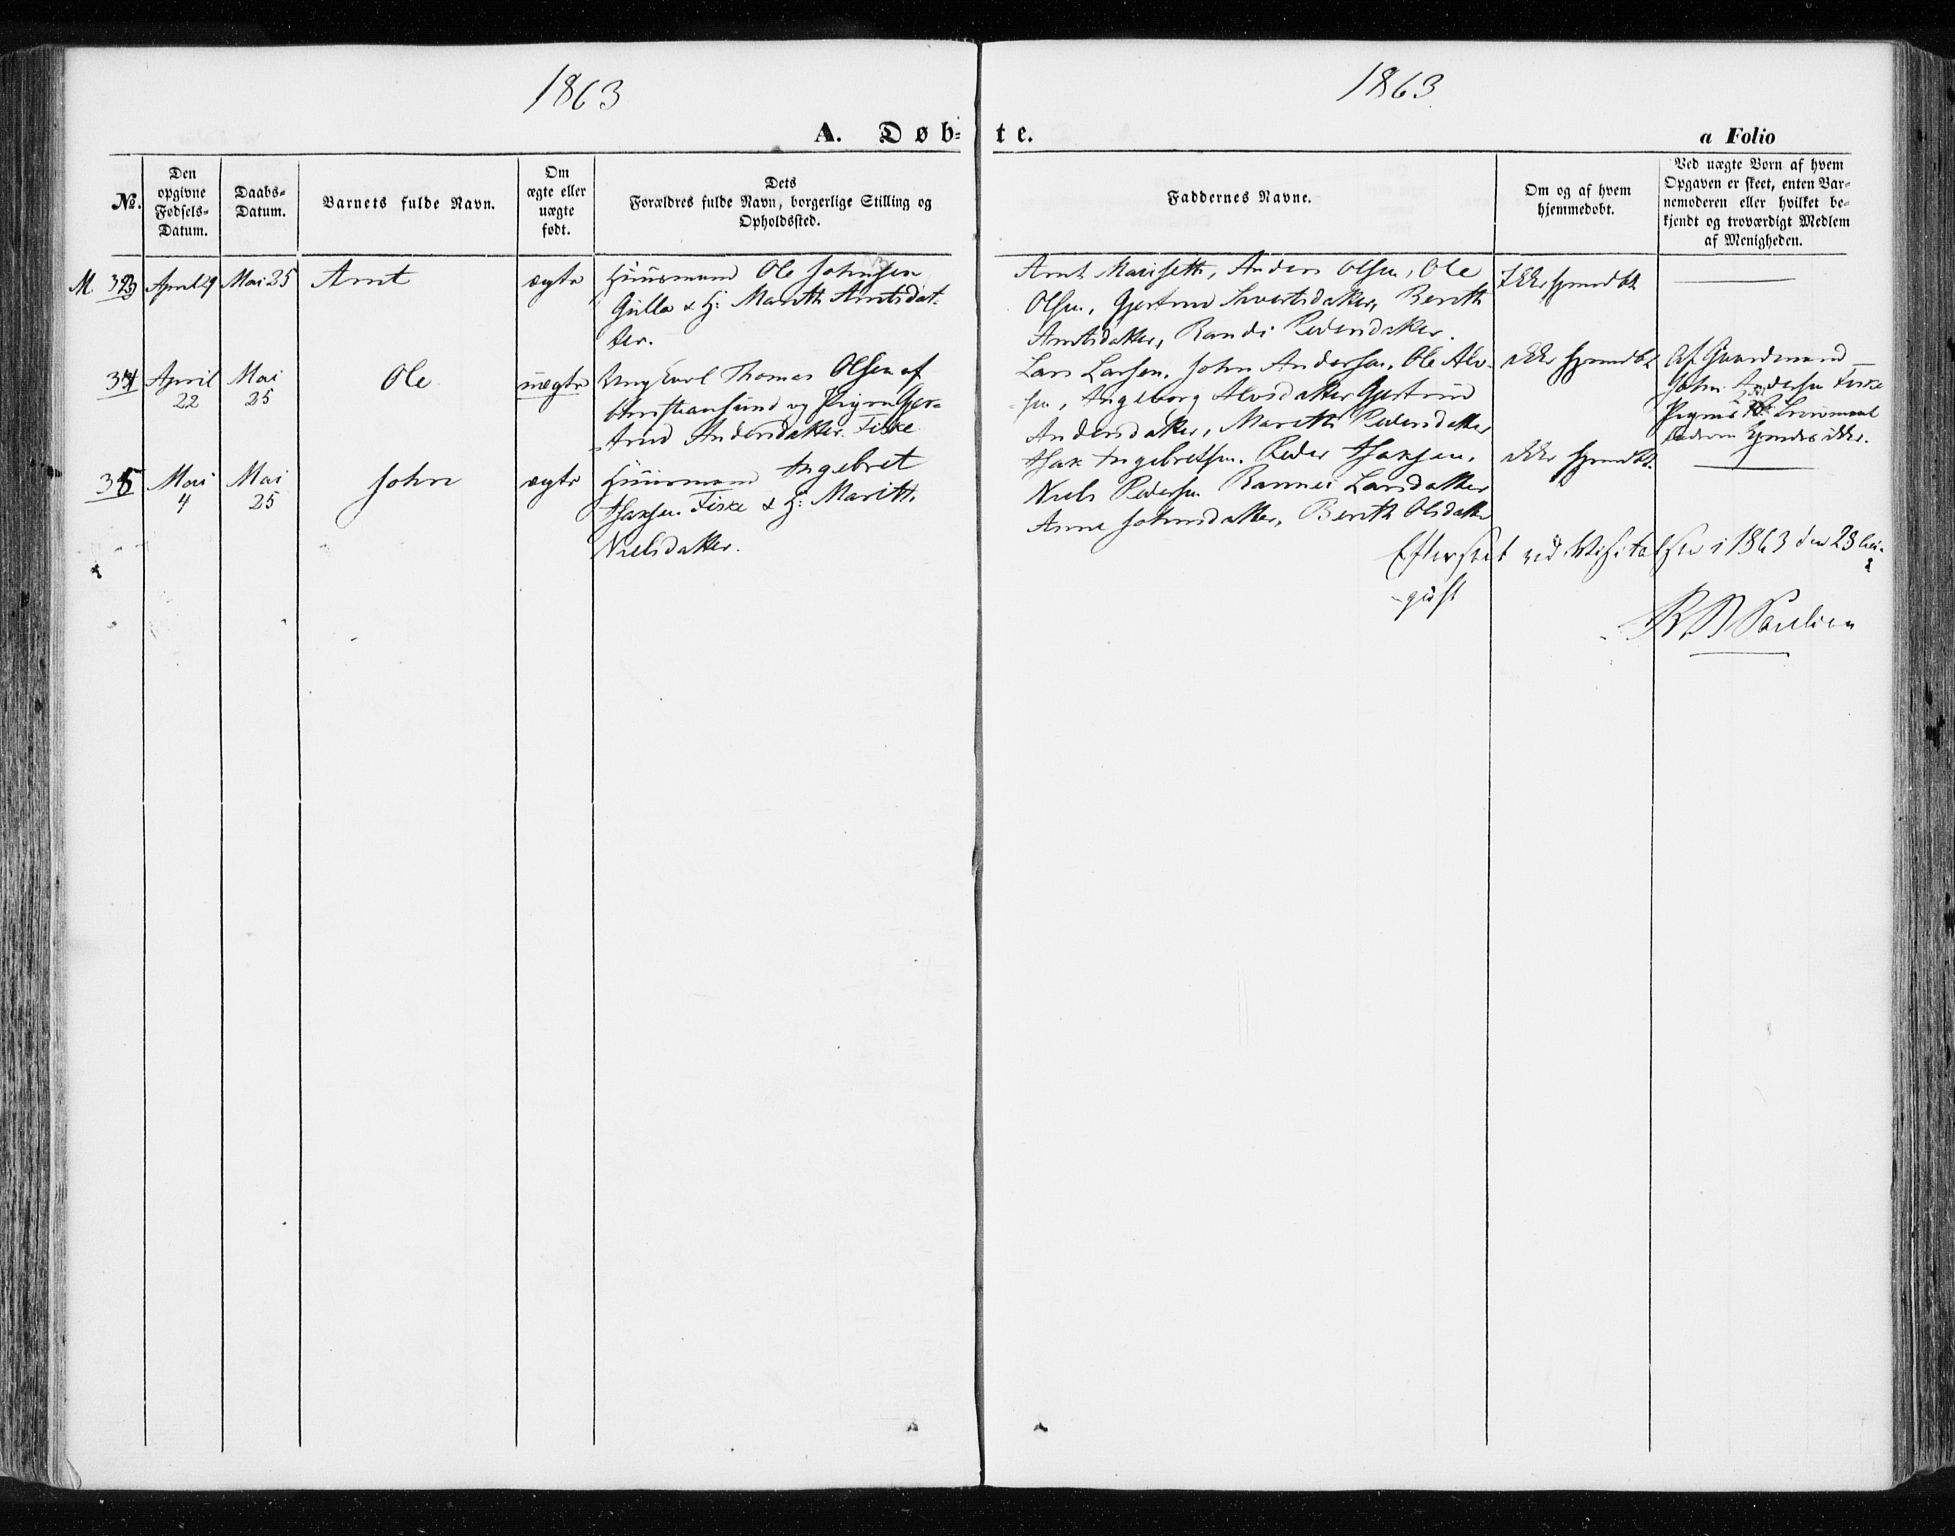 1863
1863
A. Døb=
te.
a Folio
No.
Den
opgivne
Fødsels=
Datum.
Daabs=
Datum.
Barnets fulde Navn.
Om
ægte eller
uægte
født.
Dets
Forældres fulde Navn, borgerlige Stilling og
Opholdssted.
Faddernes Navne.
Om og af hvem
hjemmedøbt.
Ved uægte Børn af hvem
Opgaven er skeet, enten Bar=
nemoderen eller hvilket be=
kjendt og troværdigt Medlem
af Menigheden.
M. 33
April 19
Mai 25
Arnt
ægte
Huusmand Ole Johnsen
Gulla & H: Marith Arntsdat-
ter.
Arnt Mauseth, Anders Olsen, Ole
Olsen, Gjertrud Sivertsdatter, Berith
Arntsdatter, Randi Pedersdatter.
Ikke hjemdbt
34
April
22
Mai
25
Ole
uægte
Ungkarl Thomas Olsen af
Christiansund og Pigen Gjer-
trud Andersdatter Fiske
Lars Larsen, John Andersen, Ole Alv-
sen, Ingeborg Alvsdatter Gjertrud
Andersdatter, Marith Pedersdatter
ikke hjemdbt
Af Gaardmand
John Andersen Fiske
Pigens 2det Leiermaal
35
Mai
4
Mai
25
John
ægte
Huusmand Ingebret
Isaksen Fiske & H: Marith
Nielsdatter.
Isak Ingebretsen, Peder Isaksen,
Niels Pedersen Rannei Larsdatter
Anne Johnsdatter, Berith Olsdatter
ikke hjemdbt.
Efterseet ved Visitatsen i 1863 den 23 Au-
-gust